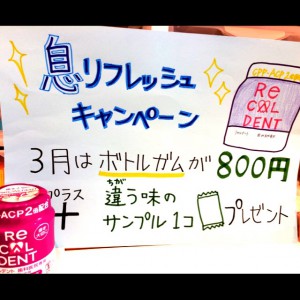 息リフレッシュ
キャンペーン
CPP-ACP 2倍配合
ReCALDENT
3月はボトルガムが800円
プラス
+
ちが
違う味の
サンプル1コ
プレゼント
-ACP 2倍配合
ReCALDENT